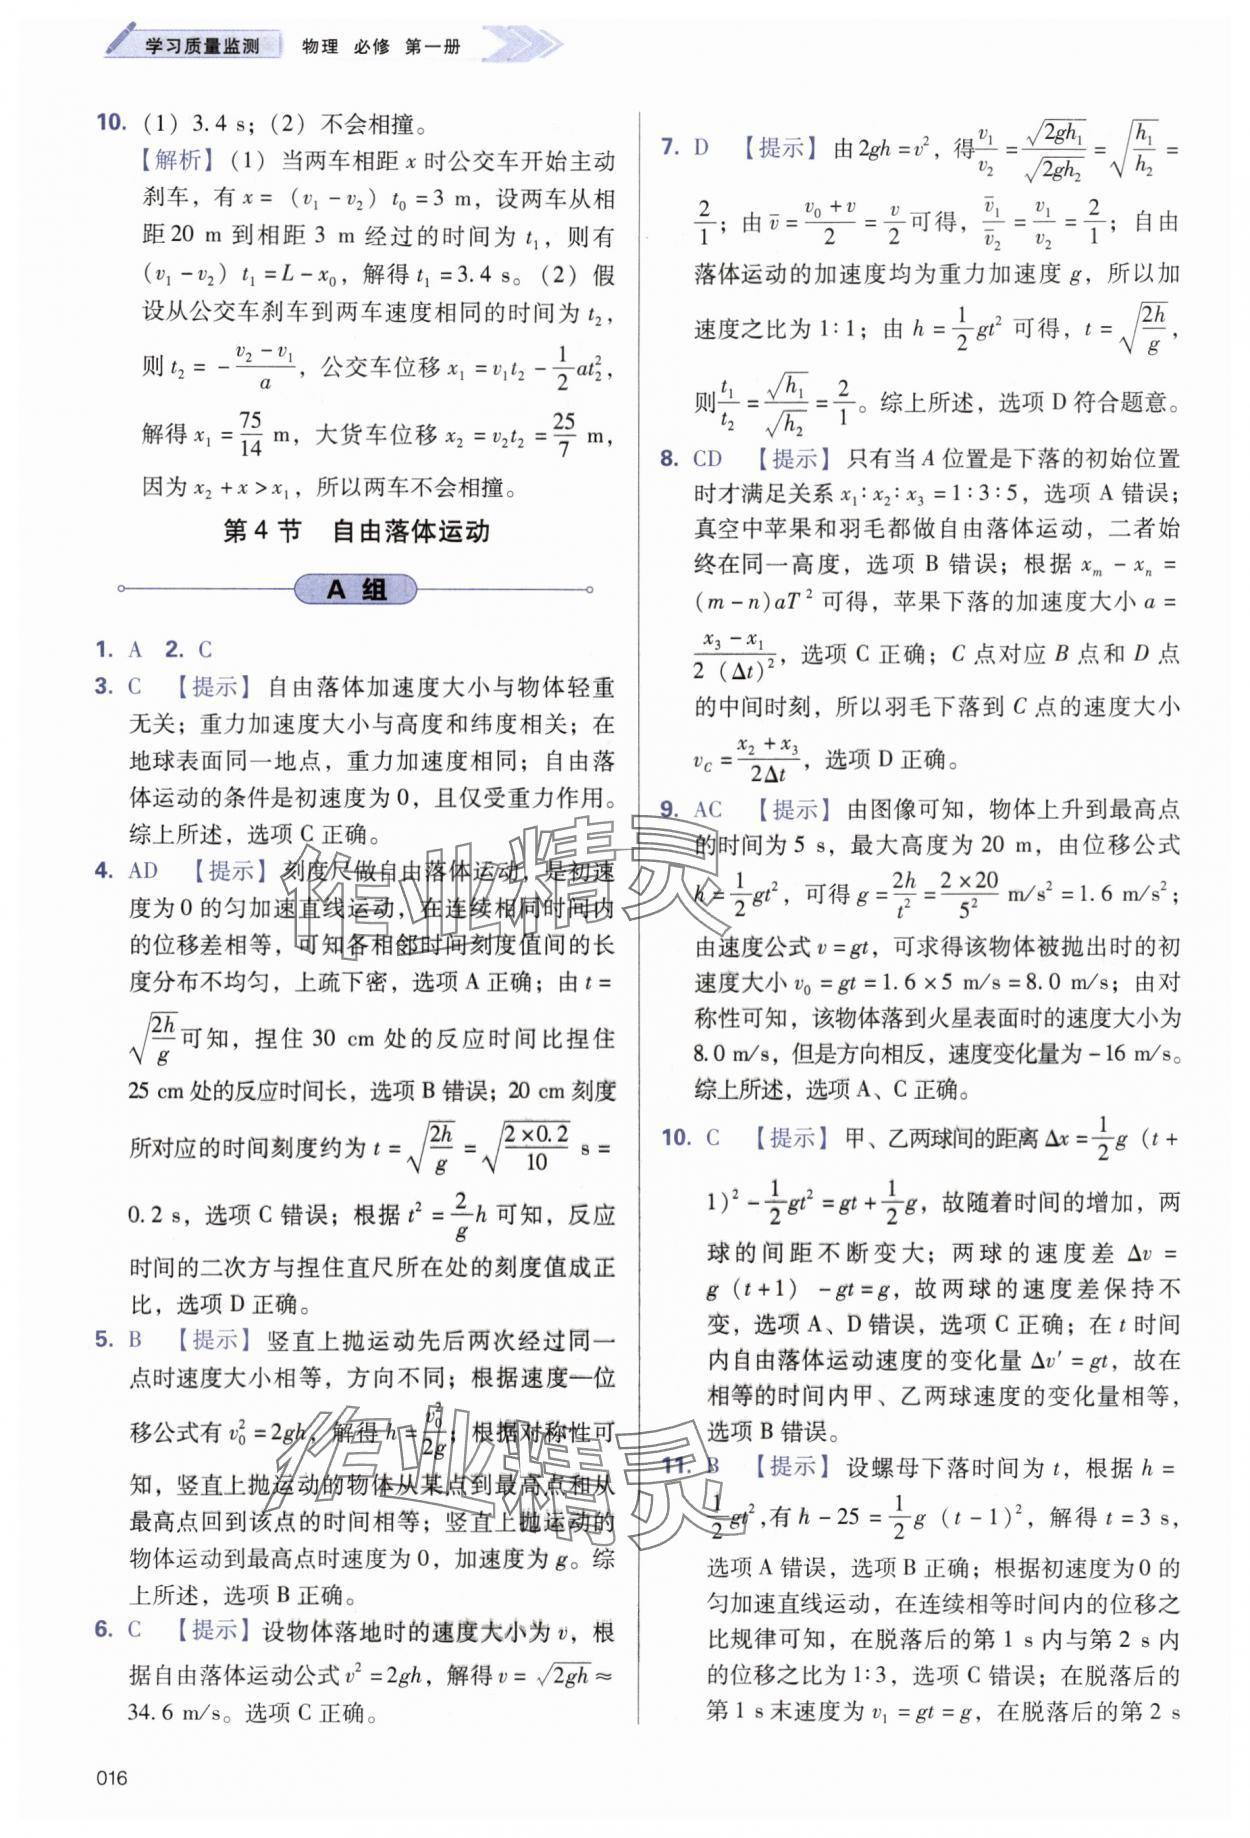 学习质量监测 物理 必修 第一册
10. (1) 3.4 s；(2) 不会相撞。
【解析】(1) 当两车相距 x 时公交车开始主动
刹车，有 x = (v₁ - v₂) t₀ = 3 m，设两车从相
距 20 m 到相距 3 m 经过的时间为 t₁，则有
(v₁ - v₂) t₁ = L - x₀，解得 t₁ = 3.4 s。(2) 假
设从公交车刹车到两车速度相同的时间为 t₂，
则 t₂ = -(v₂ - v₁)/a，公交车位移 x₁ = v₁t₂ - 1/2 at₂²，
解得 x₁ = 75/14 m，大货车位移 x₂ = v₂t₂ = 25/7 m，
因为 x₂ + x > x₁，所以两车不会相撞。
第 4 节 自由落体运动
A 组
1. A 2. C
3. C 【提示】自由落体加速度大小与物体轻重
无关；重力加速度大小与高度和纬度相关；在
地球表面同一地点，重力加速度相同；自由落
体运动的条件是初速度为 0，且仅受重力作用。
综上所述，选项 C 正确。
4. AD 【提示】刻度尺做自由落体运动，是初速
度为 0 的匀加速直线运动，在连续相同时间内
的位移差相等，可知各相邻时间刻度值间的长
度分布不均匀，上疏下密，选项 A 正确；由 t =
√(2h/g) 可知，捏住 30 cm 处的反应时间比捏住
25 cm 处的反应时间长，选项 B 错误；20 cm 刻度
所对应的时间刻度约为 t = √(2h/g) = √(2×0.2/10) s =
0.2 s，选项 C 错误；根据 t² = 2/g h 可知，反应
时间的二次方与捏住直尺所在处的刻度值成正
比，选项 D 正确。
5. B 【提示】竖直上抛运动先后两次经过同一
点时速度大小相等，方向不同；根据速度—位
移公式有 v₀² = 2gh，解得 h = v₀²/2g；根据对称性可
知，竖直上抛运动的物体从某点到最高点和从
最高点回到该点的时间相等；竖直上抛运动的
物体运动到最高点时速度为 0，加速度为 g。综
上所述，选项 B 正确。
6. C 【提示】设物体落地时的速度大小为 v，根
据自由落体运动公式 v² = 2gh，解得 v = √(2gh) ≈
34.6 m/s。选项 C 正确。
7. D 【提示】由 2gh = v²，得 v₁/v₂ = √(2gh₁)/√(2gh₂) = √(h₁/h₂) =
2/1；由 v̄ = (v₀ + v)/2 = v/2 可得，v̄₁/v̄₂ = v₁/v₂ = 2/1；自由
落体运动的加速度均为重力加速度 g，所以加
速度之比为 1∶1；由 h = 1/2 gt² 可得，t = √(2h/g)，
则 t₁/t₂ = √h₁/√h₂ = 2/1。综上所述，选项 D 符合题意。
8. CD 【提示】只有当 A 位置是下落的初始位置
时才满足关系 x₁∶x₂∶x₃ = 1∶3∶5，选项 A 错误；
真空中苹果和羽毛都做自由落体运动，二者始
终在同一高度，选项 B 错误；根据 xₘ - xₙ =
(m - n)aT² 可得，苹果下落的加速度大小 a =
(x₃ - x₁)/2(Δt)²，选项 C 正确；C 点对应 B 点和 D 点
的中间时刻，所以羽毛下落到 C 点的速度大小
v_C = (x₂ + x₃)/2Δt，选项 D 正确。
9. AC 【提示】由图像可知，物体上升到最高点
的时间为 5 s，最大高度为 20 m，由位移公式
h = 1/2 gt²，可得 g = 2h/t² = (2×20)/5² m/s² = 1.6 m/s²；
由速度公式 v = gt，可求得该物体被抛出时的初
速度大小 v₀ = gt = 1.6×5 m/s = 8.0 m/s；由对
称性可知，该物体落到火星表面时的速度大小为
8.0 m/s，但是方向相反，速度变化量为 -16 m/s。
综上所述，选项 A、C 正确。
10. C 【提示】甲、乙两球间的距离 Δx = 1/2 g (t +
1)² - 1/2 gt² = gt + 1/2 g，故随着时间的增加，两
球的间距不断变大；两球的速度差 Δv =
g (t+1) - gt = g，故两球的速度差保持不
变，选项 A、D 错误，选项 C 正确；在 t 时间
内自由落体运动速度的变化量 Δv′ = gt，故在
相等的时间内甲、乙两球速度的变化量相等，
选项 B 错误。
11. B 【提示】设螺母下落时间为 t，根据 h =
1/2 gt²，有 h - 25 = 1/2 g (t - 1)²，解得 t = 3 s，
选项 A 错误，选项 B 正确；根据初速度为 0 的
匀加速直线运动，在连续相等时间内的位移之
比规律可知，在脱落后的第 1 s 内与第 2 s 内
的位移之比为 1∶3，选项 C 错误；在脱落后的
第 1 s 末速度为 v₁ = gt = g，在脱落后的第 2 s
016
作业精灵
作业精灵